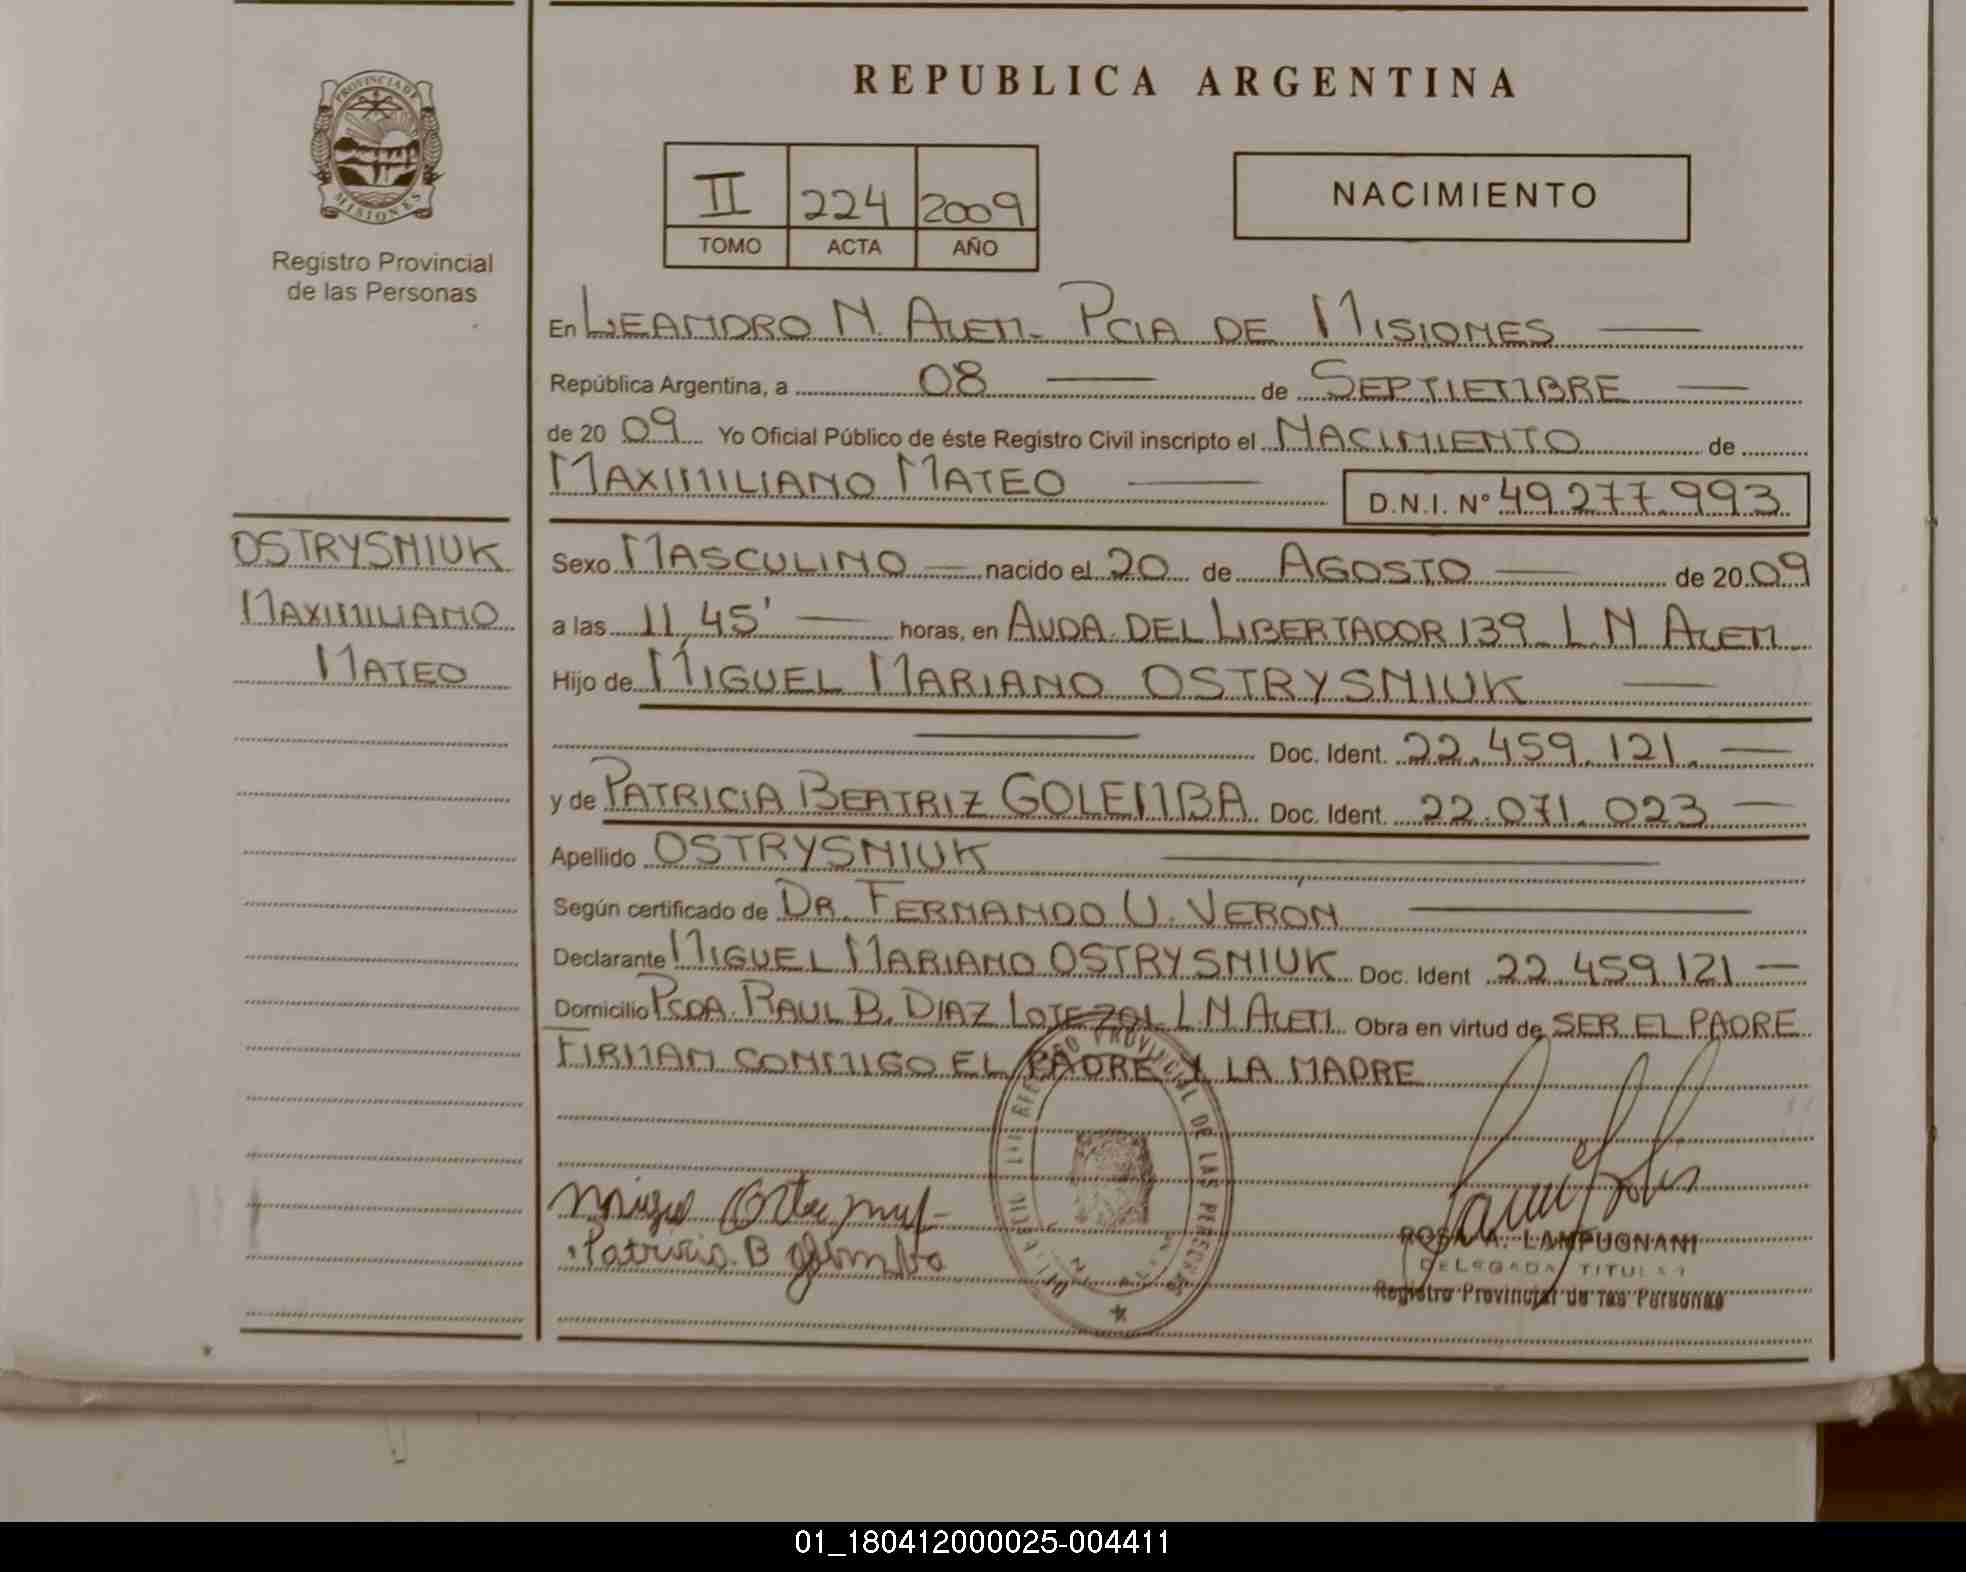 REPUBLICA ARGENTINA
PROVINCIA DE MISIONES
Registro Provincial
de las Personas
II 224 2009
TOMO ACTA AÑO
NACIMIENTO
En LEANDRO N. ALEM - PCIA DE MISIONES
República Argentina, a 08 de SEPTIEMBRE
de 20 09 Yo Oficial Público de éste Registro Civil inscripto el NACIMIENTO de
MAXIMILIANO MATEO D.N.I. Nº 49.277.993
OSTRYSNIUK
MAXIMILIANO
MATEO
Sexo MASCULINO nacido el 20 de AGOSTO de 20 09
a las 11,45' horas, en AVDA. DEL LIBERTADOR 139 - L N ALEM
Hijo de MIGUEL MARIANO OSTRYSNIUK
Doc. Ident. 22.459.121.
y de PATRICIA BEATRIZ GOLEMBA Doc. Ident. 22.071.023
Apellido OSTRYSNIUK
Según certificado de DR. FERNANDO U. VERON
Declarante MIGUEL MARIANO OSTRYSNIUK Doc. Ident 22.459.121
Domicilio PCDA. RAUL B. DIAZ LOTE L.N. ALEM Obra en virtud de SER EL PADRE
FIRMAN CONMIGO EL PADRE Y LA MADRE
REGISTRO PROVINCIAL DE LAS PERSONAS
Patricia B Golemba
ROSA A. LAMPUGNANI
DELEGADA TITULAR
Registro Provincial de las Personas
01_180412000025-004411